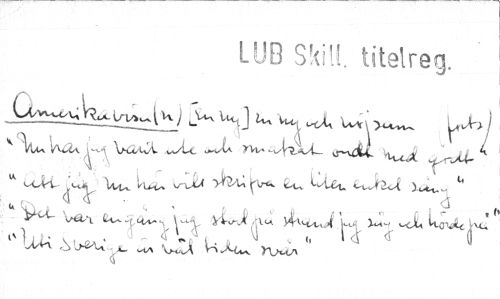 LUB Skill. titelreg.
Amerikavisa(n) [En ny] En ny och nöjsam (forts)
"Nu har jag varit ute och smakat ondt med godt"
"Att jag nu här vill skrifva en liten enkel sång"
"Det var en gång jag stod på strand jag såg och hörde på"
"Uti Sverige är vål tiden svår"